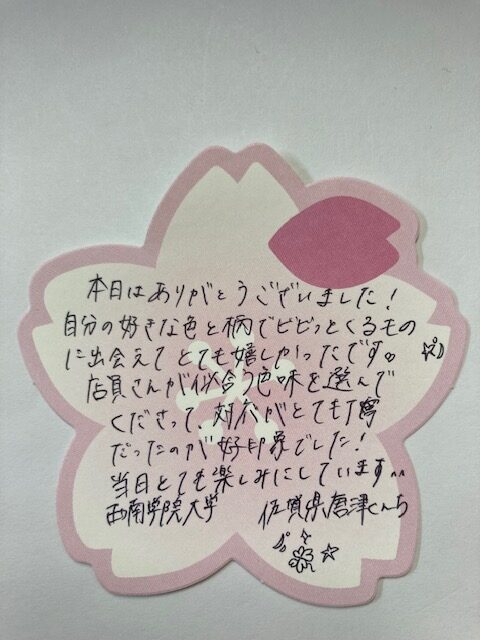 本日はありがとうございました!
自分の好きな色と柄でビビっとくるもの
に出会えてとても嬉しかったです。
店員さんが似合う色味を選んで
くださって、対応がとても丁寧
だったのが好印象でした!
当日とても楽しみにしています^^
西南学院大学 佐賀県唐津くんち